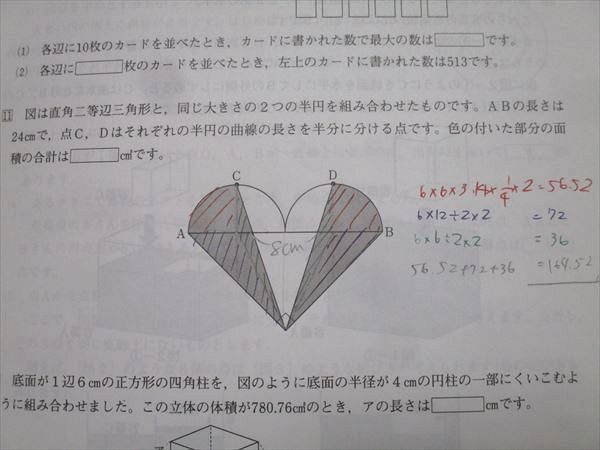 (1) 各辺に10枚のカードを並べたとき，カードに書かれた数で最大の数は　　　です。
(2) 各辺に　　　枚のカードを並べたとき，左上のカードに書かれた数は513です。
11 図は直角二等辺三角形と，同じ大きさの２つの半円を組み合わせたものです。ＡＢの長さは
24cmで，点Ｃ，Ｄはそれぞれの半円の曲線の長さを半分に分ける点です。色の付いた部分の面
積の合計は　　　㎠です。
C
D
A
B
8cm
6×6×3.14×1/4×2=56.52
6×12÷2×2 =72
6×6÷2×2 =36
56.52+72+36 =164.52
底面が１辺６cmの正方形の四角柱を，図のように底面の半径が４cmの円柱の一部にくいこむよ
うに組み合わせました。この立体の体積が780.76㎤のとき，アの長さは　　　cmです。
ア